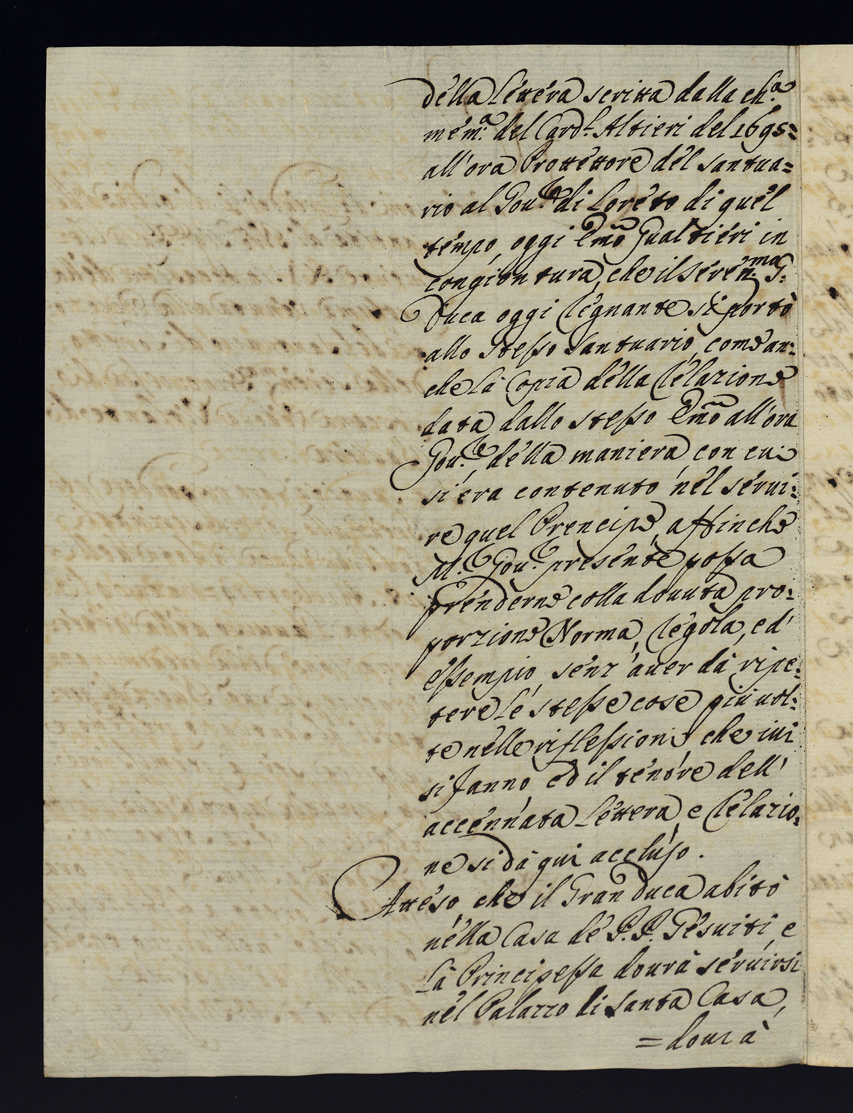 della lettera scritta dalla ch:a
mem:a del Card.l Altieri del 1695=
all'ora Protettore del santua=
rio al Gou.re di Loreto di quel
tempo, oggi Emõ Gualtieri in
congiontura, che il seren.mo G:
Duca oggi Regnante si portò
allo stesso santuario, come an:
che la Copia della Relazione
data dallo stesso Emõ all'ora
Gou.re della maniera con cui
si era contenuto nel serui:
re quel Prencipe, affinche
M.r Gou.re presente possa
prenderne colla douuta pro:
porzione Norma, Regola, ed
essempio senz'auer dà ripe:
tere le stesse cose più uol:
te nelle riflessioni, che iui
si fanno ed il tenore dell'
accennata lettera e Relazio:
ne si dà qui accluso.
Atteso che il Gran Duca abitò
nella Casa de P.P. Gesuiti, e
la Principessa dourà seruirsi
nel Palazzo di Santa Casa,
= dourà